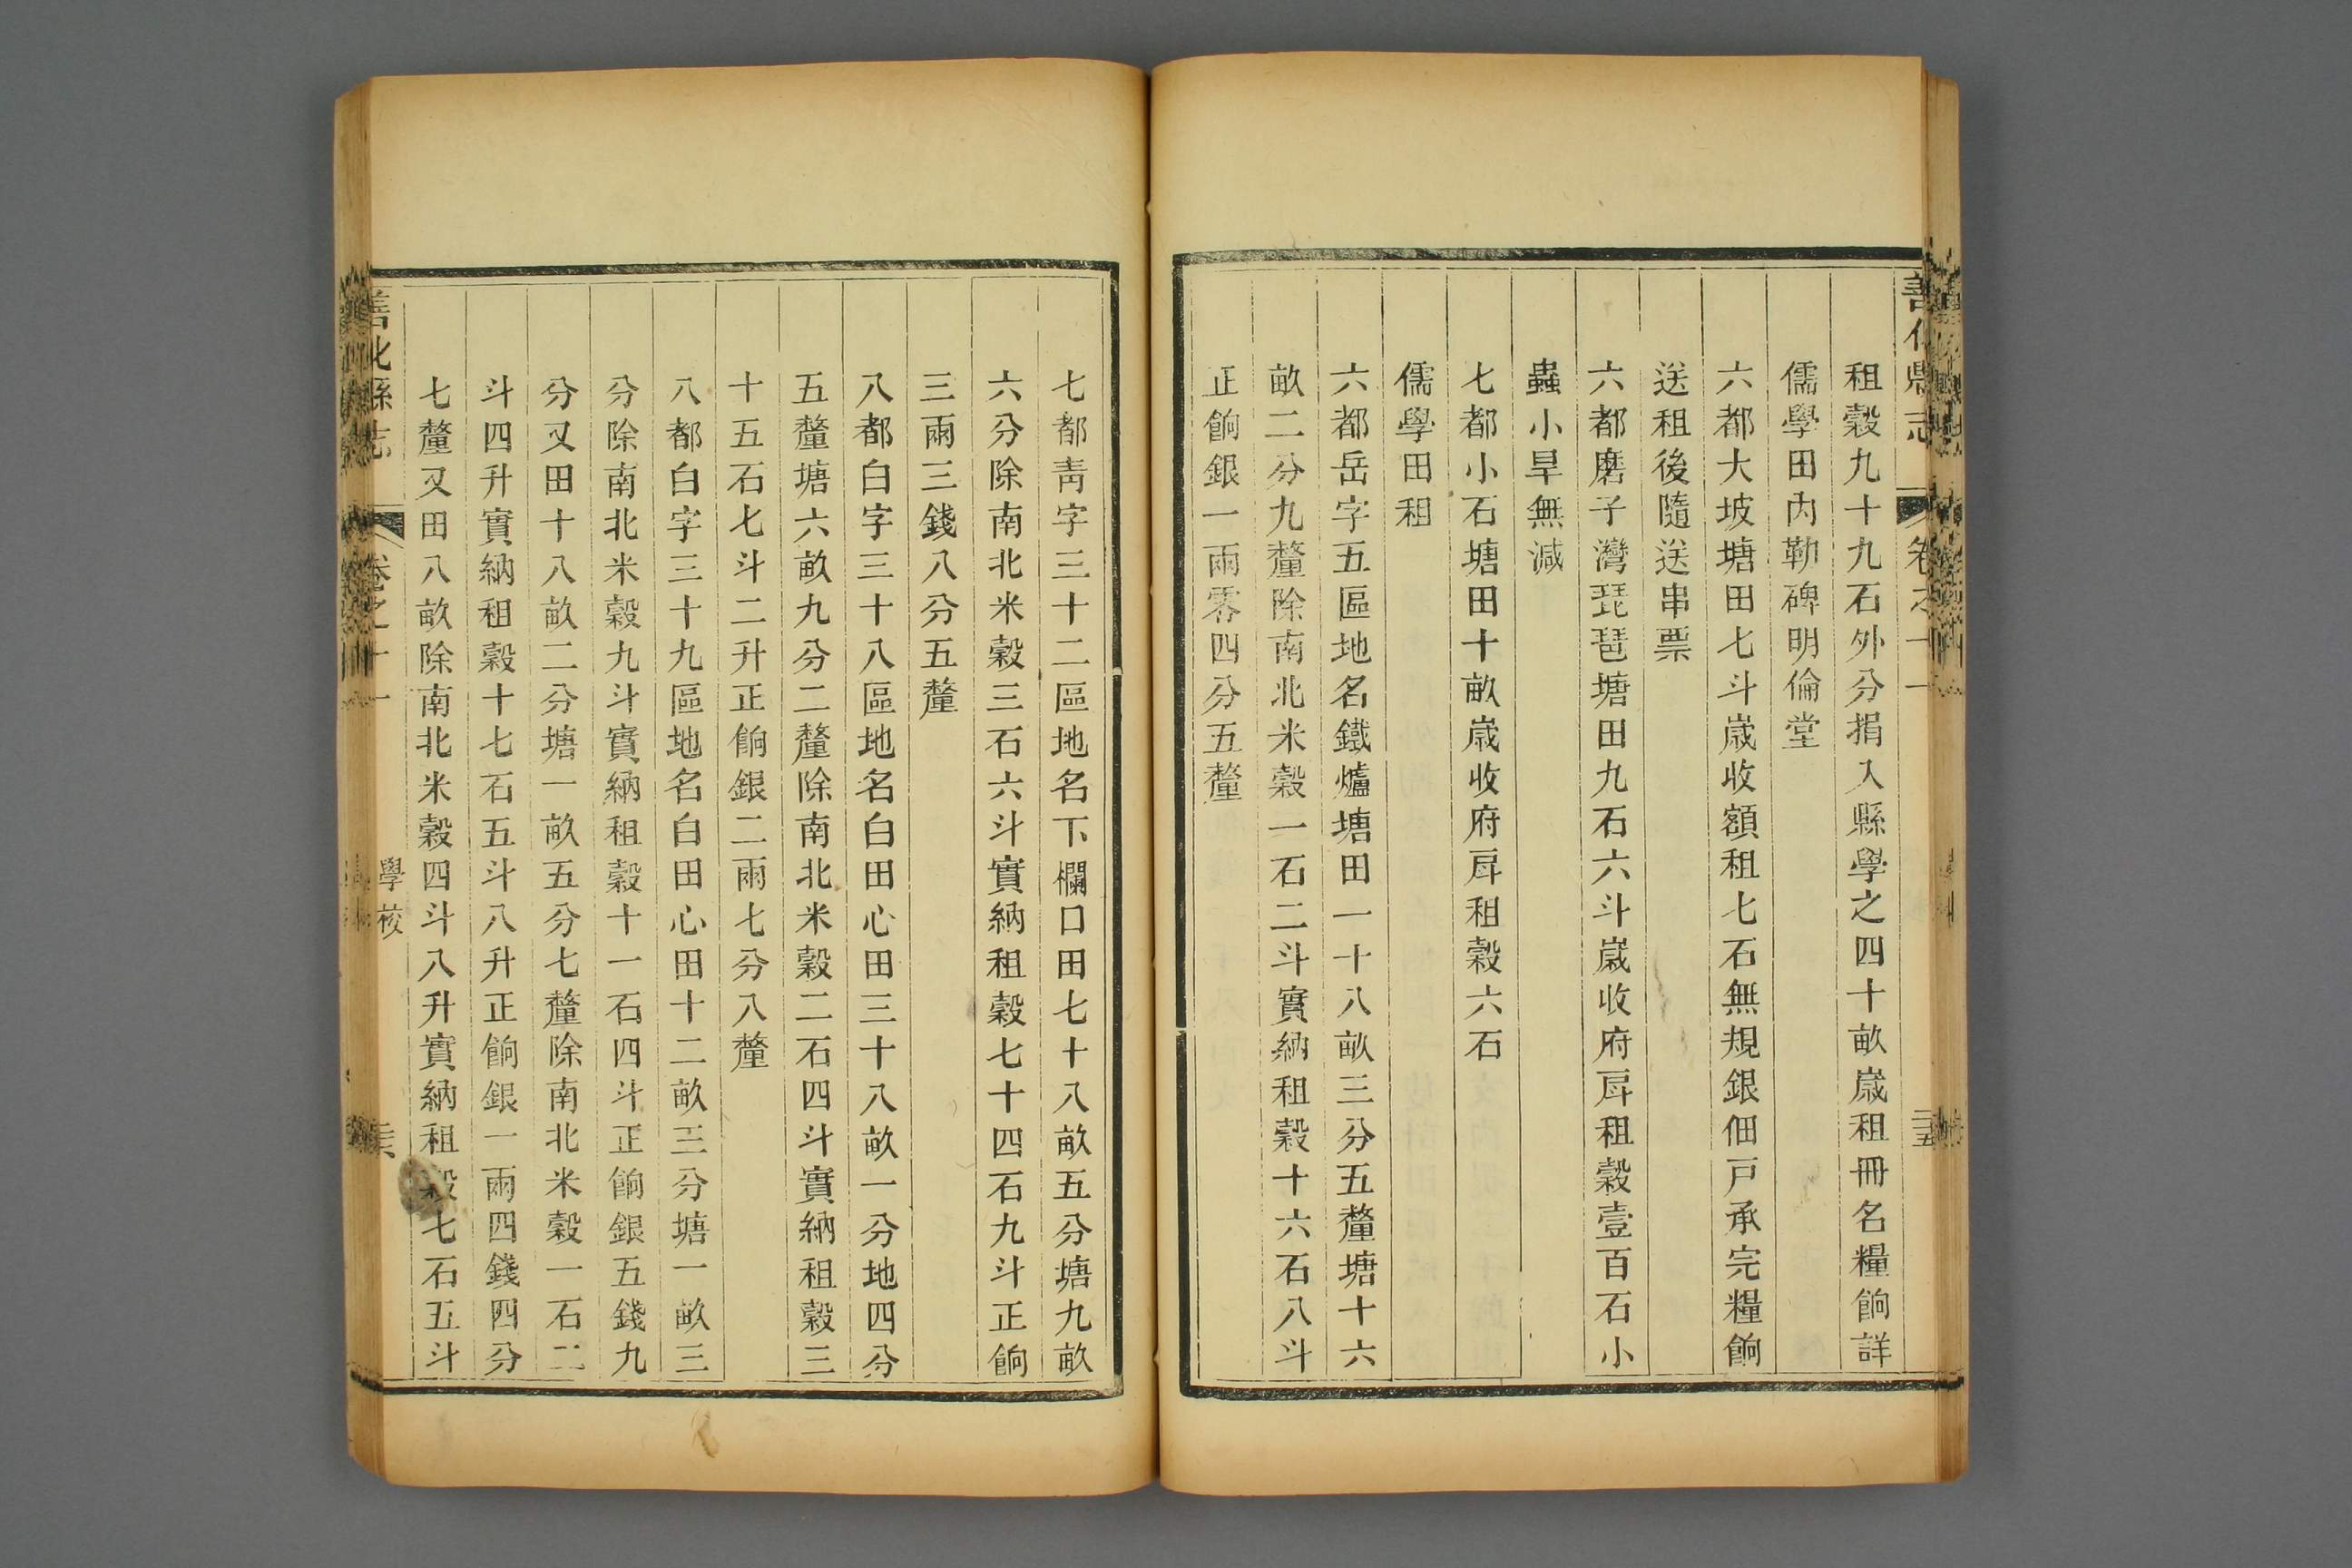 善化縣志
卷之十一
三五
租穀九十九石外分捐入縣學之四十畝歲租冊名糧餉詳
儒學田內勒碑明倫堂
六都大坡塘田七斗歲收額租七石無規銀佃戸承完糧餉
送租後隨送串票
六都磨子灣琵琶塘田九石六斗歲收府斛租穀壹百石小
蟲小旱無減
七都小石塘田十畝歲收府斛租穀六石
儒學田租
六都岳字五區地名鐵爐塘田一十八畝三分五釐塘十六
畝二分九釐除南北米穀一石二斗實納租穀十六石八斗
正餉銀一兩零四分五釐
七都靑字三十二區地名下欄口田七十八畝五分塘九畝
六分除南北米穀三石六斗實納租穀七十四石九斗正餉
三兩三錢八分五釐
八都白字三十八區地名白田心田三十八畝一分地四分
五釐塘六畝九分二釐除南北米穀二石四斗實納租穀三
十五石七斗二升正餉銀二兩七分八釐
八都白字三十九區地名白田心田十二畝三分塘一畝三
分除南北米穀九斗實納租穀十一石四斗正餉銀五錢九
分又田十八畝二分塘一畝五分七釐除南北米穀一石二
斗四升實納租穀十七石五斗八升正餉銀一兩四錢四分
七釐又田八畝除南北米穀四斗八升實納租穀七石五斗
善化縣志
卷之十一
學校
三六